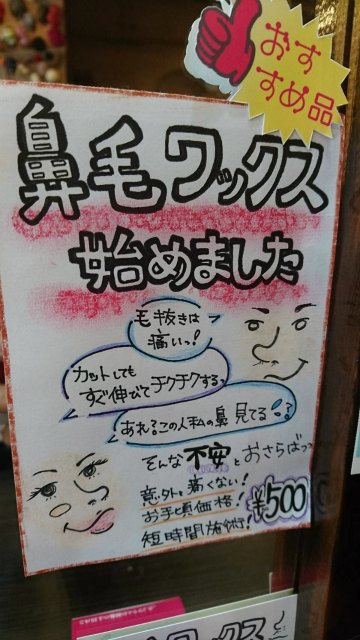 おす
すめ品
鼻毛ワックス
始めました
毛抜きは
痛いっ!
カットしても
すぐ伸びてチクチクするっ
あれ?この人私の鼻見てる?
そんな不安とおさらばっっ
意外と痛くない!
お手頃価格!
¥500
短時間施術!